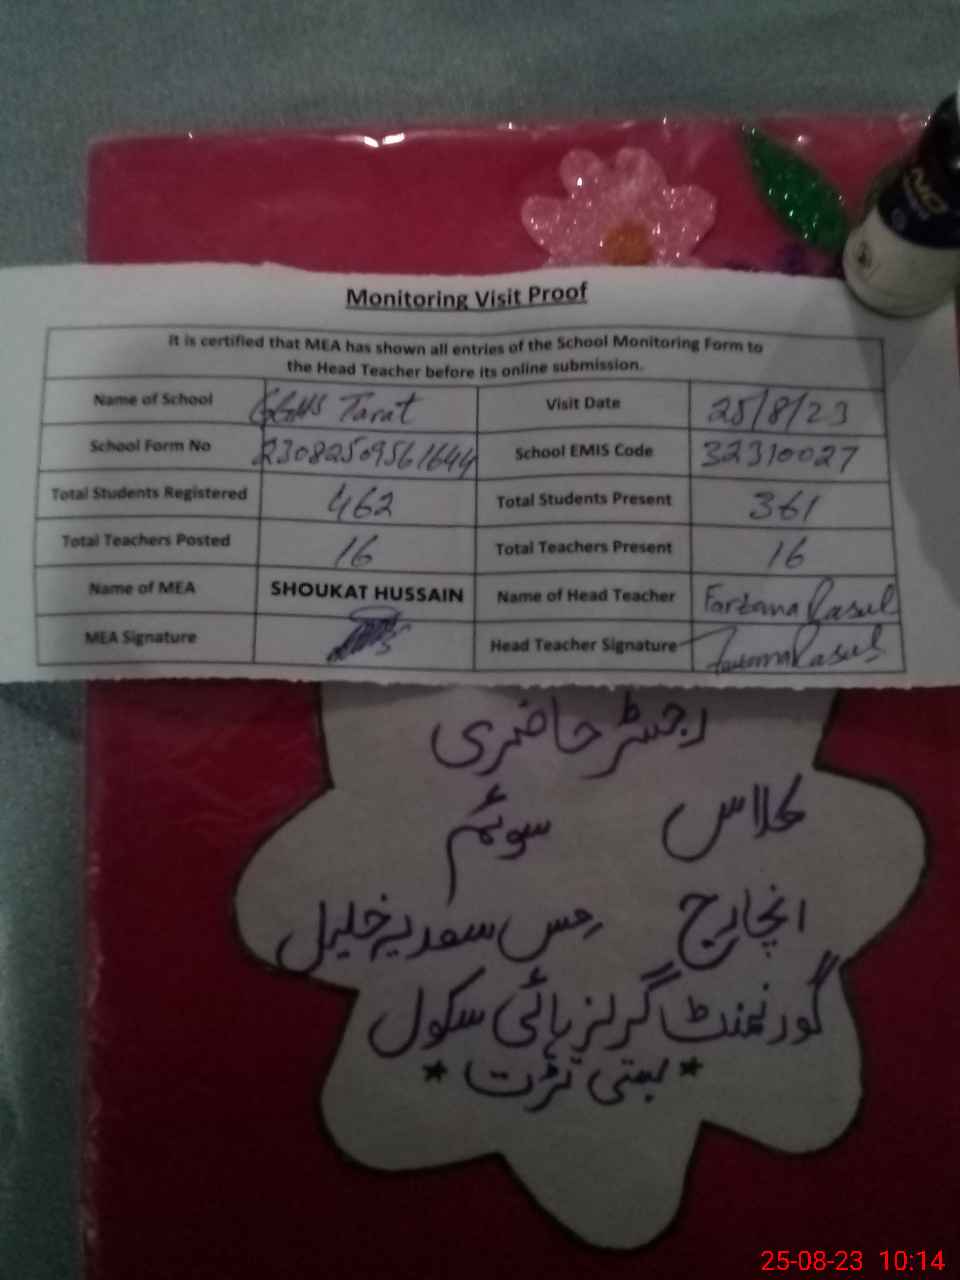 Monitoring Visit Proof
It is certified that MEA has shown all entries of the School Monitoring Form to
the Head Teacher before its online submission.
Name of School GGHS Tarat Visit Date 25/8/23
School Form No 23082509561644 School EMIS Code 32310027
Total Students Registered 462 Total Students Present 361
Total Teachers Posted 16 Total Teachers Present 16
Name of MEA SHOUKAT HUSSAIN Name of Head Teacher Farzana Rasul
MEA Signature Head Teacher Signature Farzana Rasul
رجسٹر حاضری
کلاس سوئم
انچارج مس سعدیہ خلیل
گورنمنٹ گرلز ہائی سکول
* بستی تڑت *
25-08-23 10:14